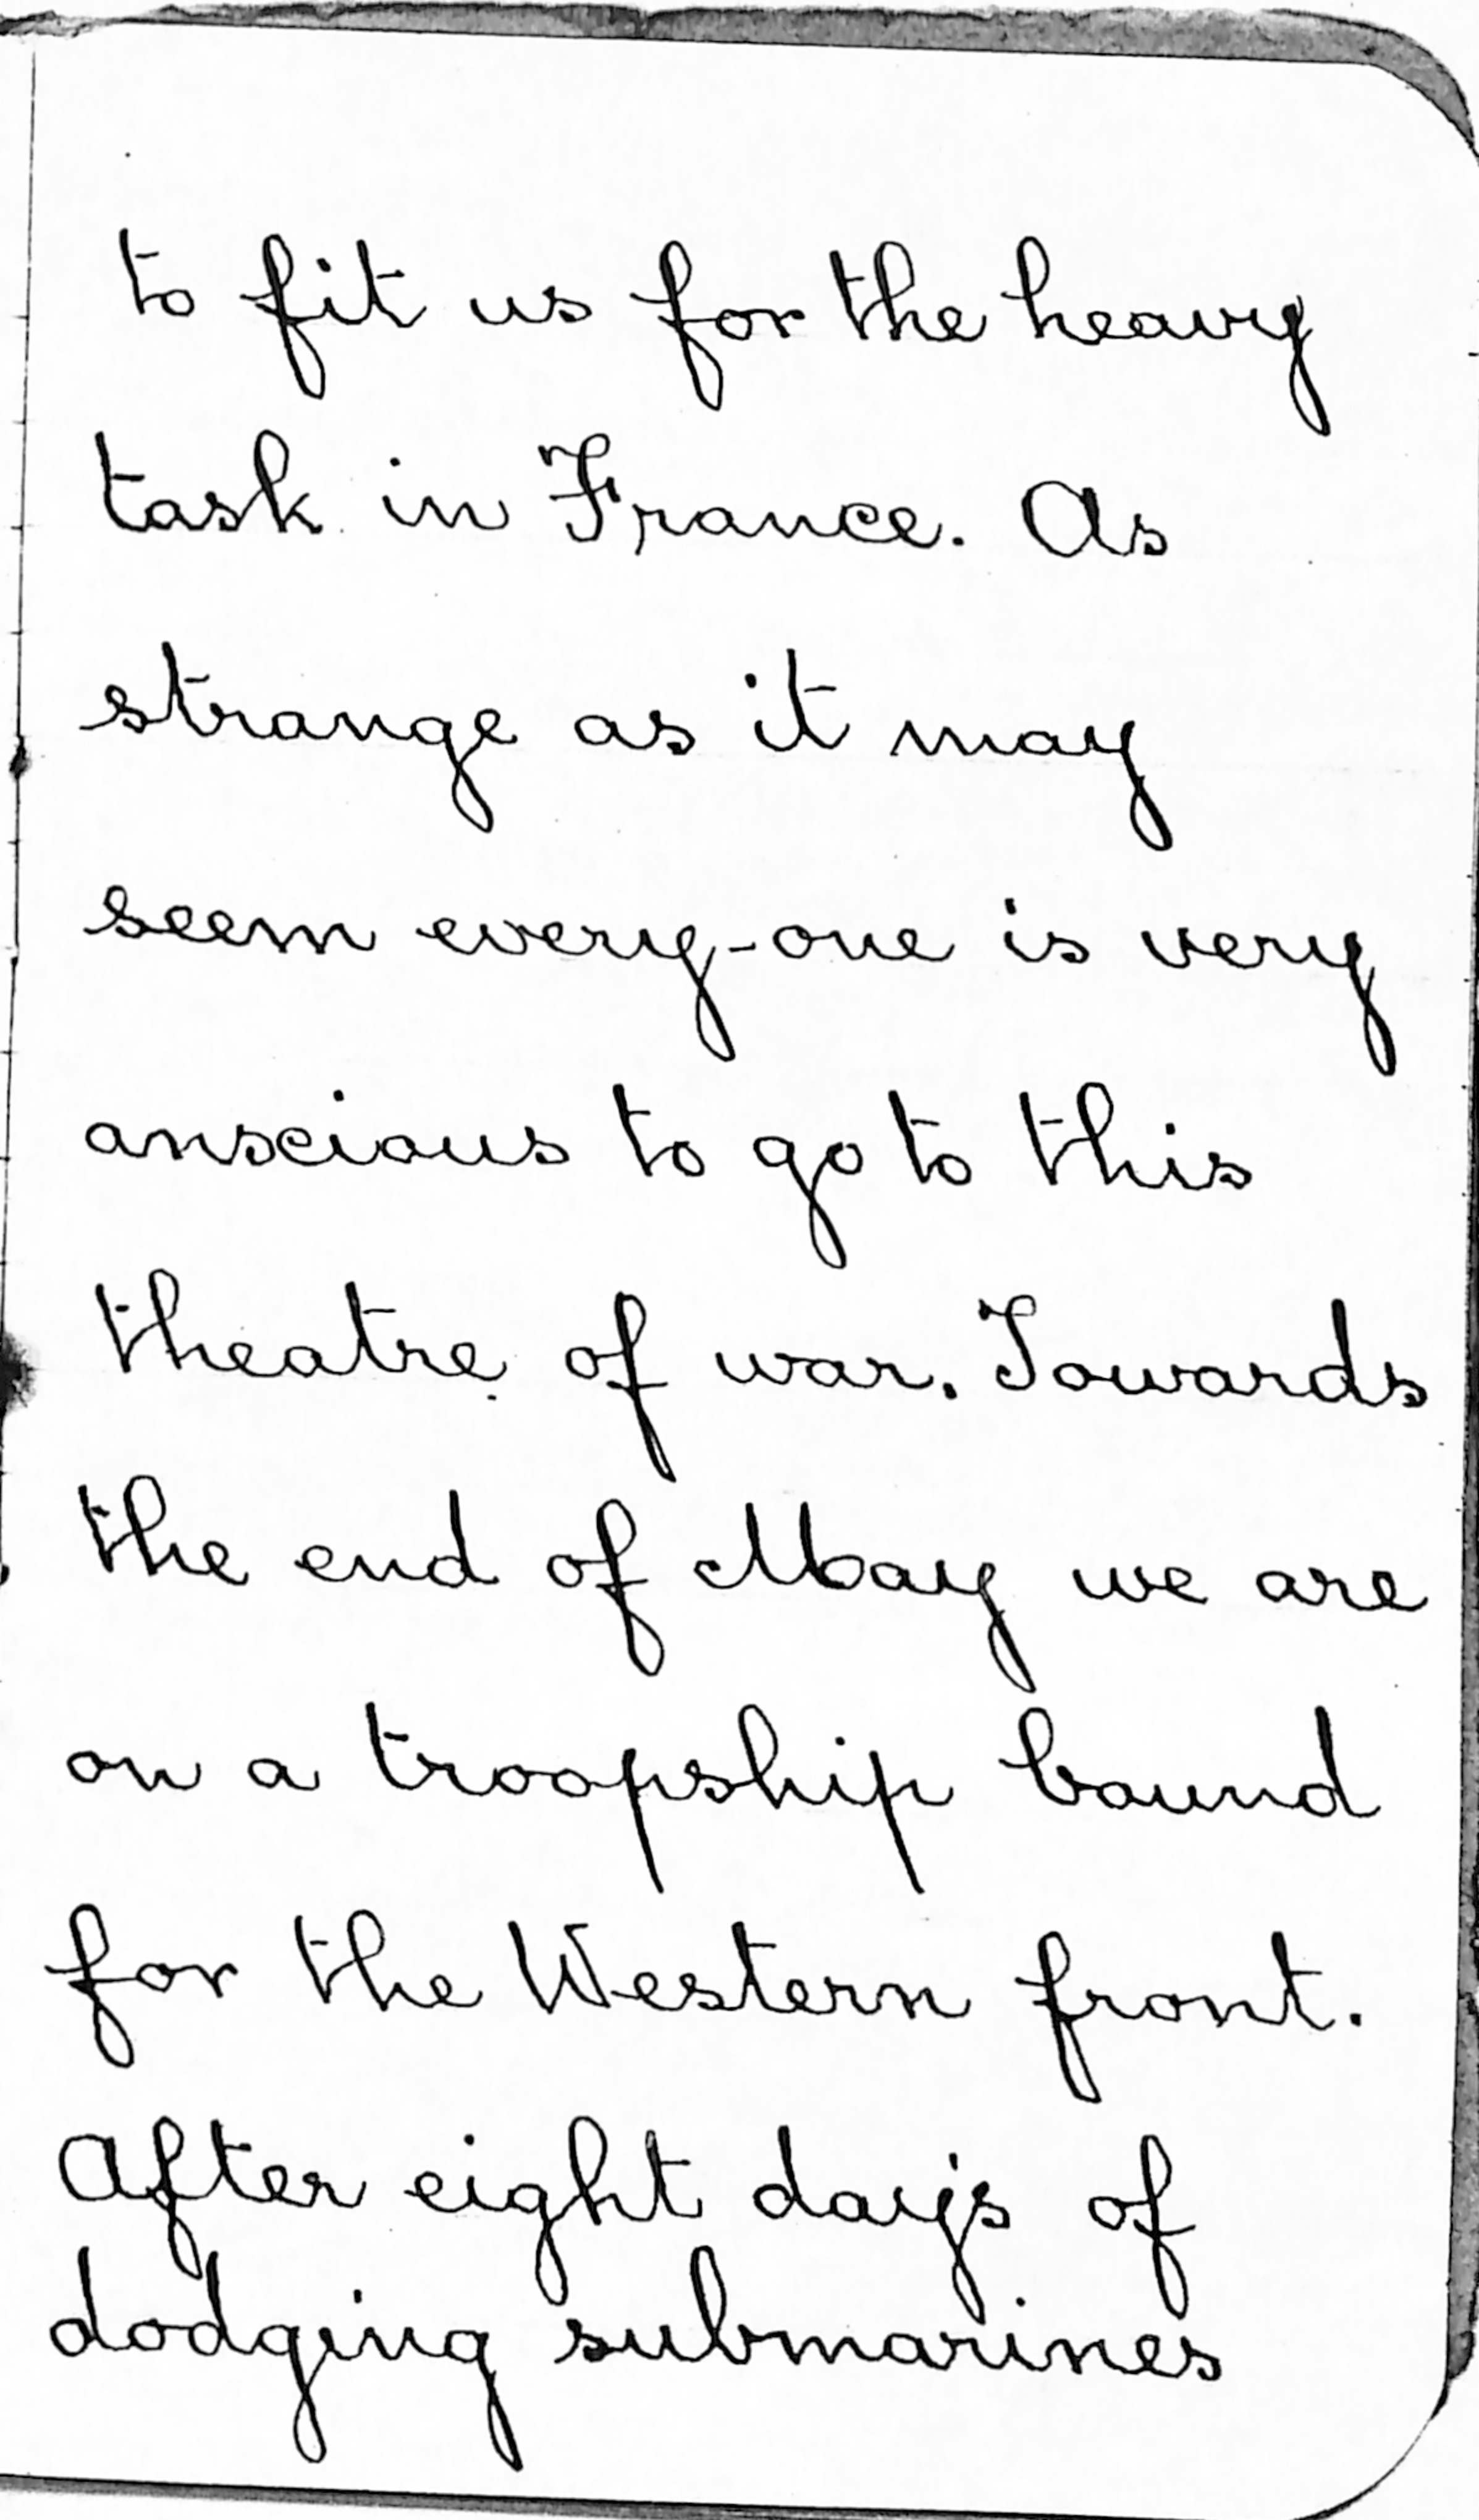 to fit us for the heavy
task in France. As
strange as it may
seem every-one is very
anscious to go to this
theatre of war. Towards
the end of May we are
on a troopship bound
for the Western front.
After eight day's of
dodging submarines